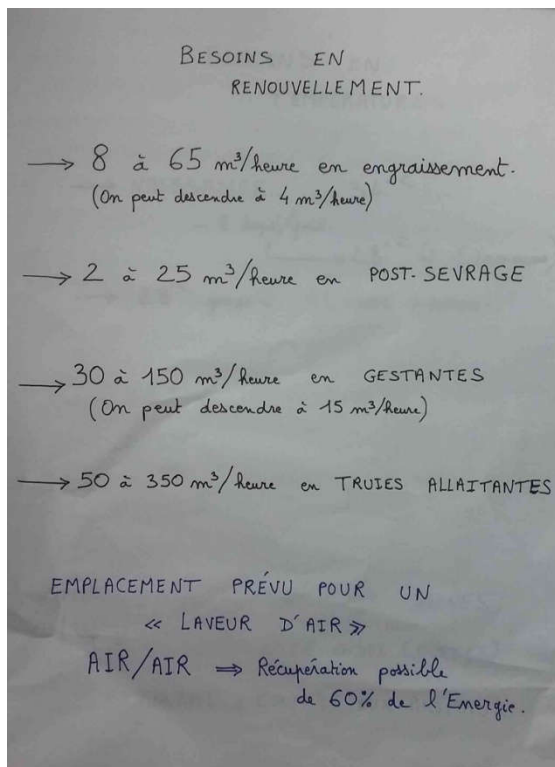 BESOINS EN
RENOUVELLEMENT.
→ 8 à 65 m³/heure en engraissement.
(On peut descendre à 4 m³/heure)
→ 2 à 25 m³/heure en POST-SEVRAGE
→ 30 à 150 m³/heure en GESTANTES
(On peut descendre à 15 m³/heure)
→ 50 à 350 m³/heure en TRUIES ALLAITANTES
EMPLACEMENT PRÉVU POUR UN
« LAVEUR D'AIR »
AIR/AIR ⇒ Récupération possible
de 60% de l'Energie.